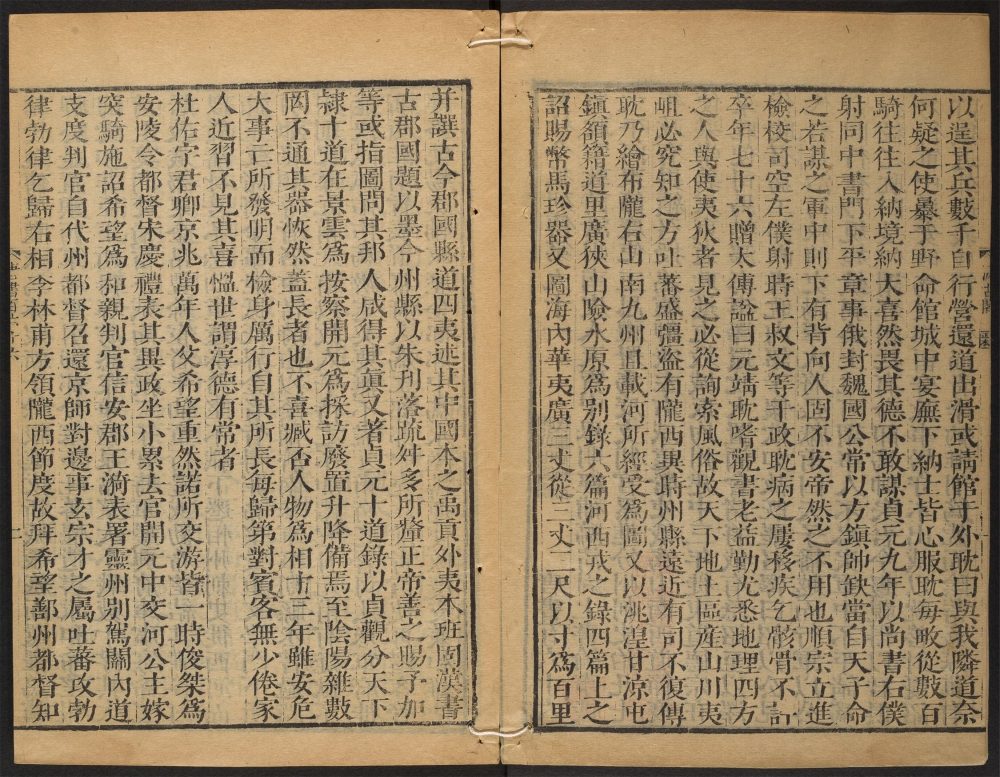 以逞其丘數千自行營還道出滑或請館于外耽曰與我隣道奈
何疑之使暴于野命館城中宴廡下納士皆心服耽每畋從數百
騎往往入納境納大喜然畏其德不敢謀貞元九年以尚書右僕
射同中書門下平章事俄封魏國公常以方鎮帥缺當自天子命
之若謀之軍中則下有背向人固不安帝然之不用也順宗立進
檢校司空左僕射時王叔文等干政耽病之屢移疾乞骸骨不許
卒年七十六贈太傅謚曰元靖耽嗜觀書老益勤尤悉地理四方
之人與使夷狄者見之必從詢索風俗故天下地土區産山川夷
岨必究知之方吐蕃盛彊盜有隴西異時州縣遠近有司不復傳
耽乃繪布隴右山南九州且載河所經受爲圖又以洮湟甘涼屯
鎮頟籍道里廣狹山險水原爲別錄六篇河西戎之錄四篇上之
詔賜幣馬珍器又圖海內華夷廣三丈從三丈三尺以寸爲百里
并譔古今郡國縣道四夷述其中國本之禹貢外夷本班固漢書
古郡國題以墨今州縣以朱刋落疏舛多所釐正帝善之賜予加
等或指圖問其邦人咸得其眞又著貞元十道錄以貞觀分天下
隸十道在景雲爲按察開元爲採訪廢置升降備焉至陰陽雜數
罔不通其器恢然蓋長者也不喜臧否人物爲相十三年雖安危
大事亡所發明而檢身厲行自其所長每歸第對賓客無少倦家
人近習不見其喜慍世謂淳德有常者
杜佑字君卿京兆萬年人父希望重然諾所交游皆一時俊桀爲
安陵令都督宋慶禮表其異政坐小累去官開元中交河公主嫁
突騎施詔希望爲和親判官信安郡王漪表署靈州別駕關內道
支度判官自代州都督召還京師對邊事玄宗才之屬吐蕃攻勃
律勃律乞歸右相李林甫方領隴西節度故拜希望鄯州都督知